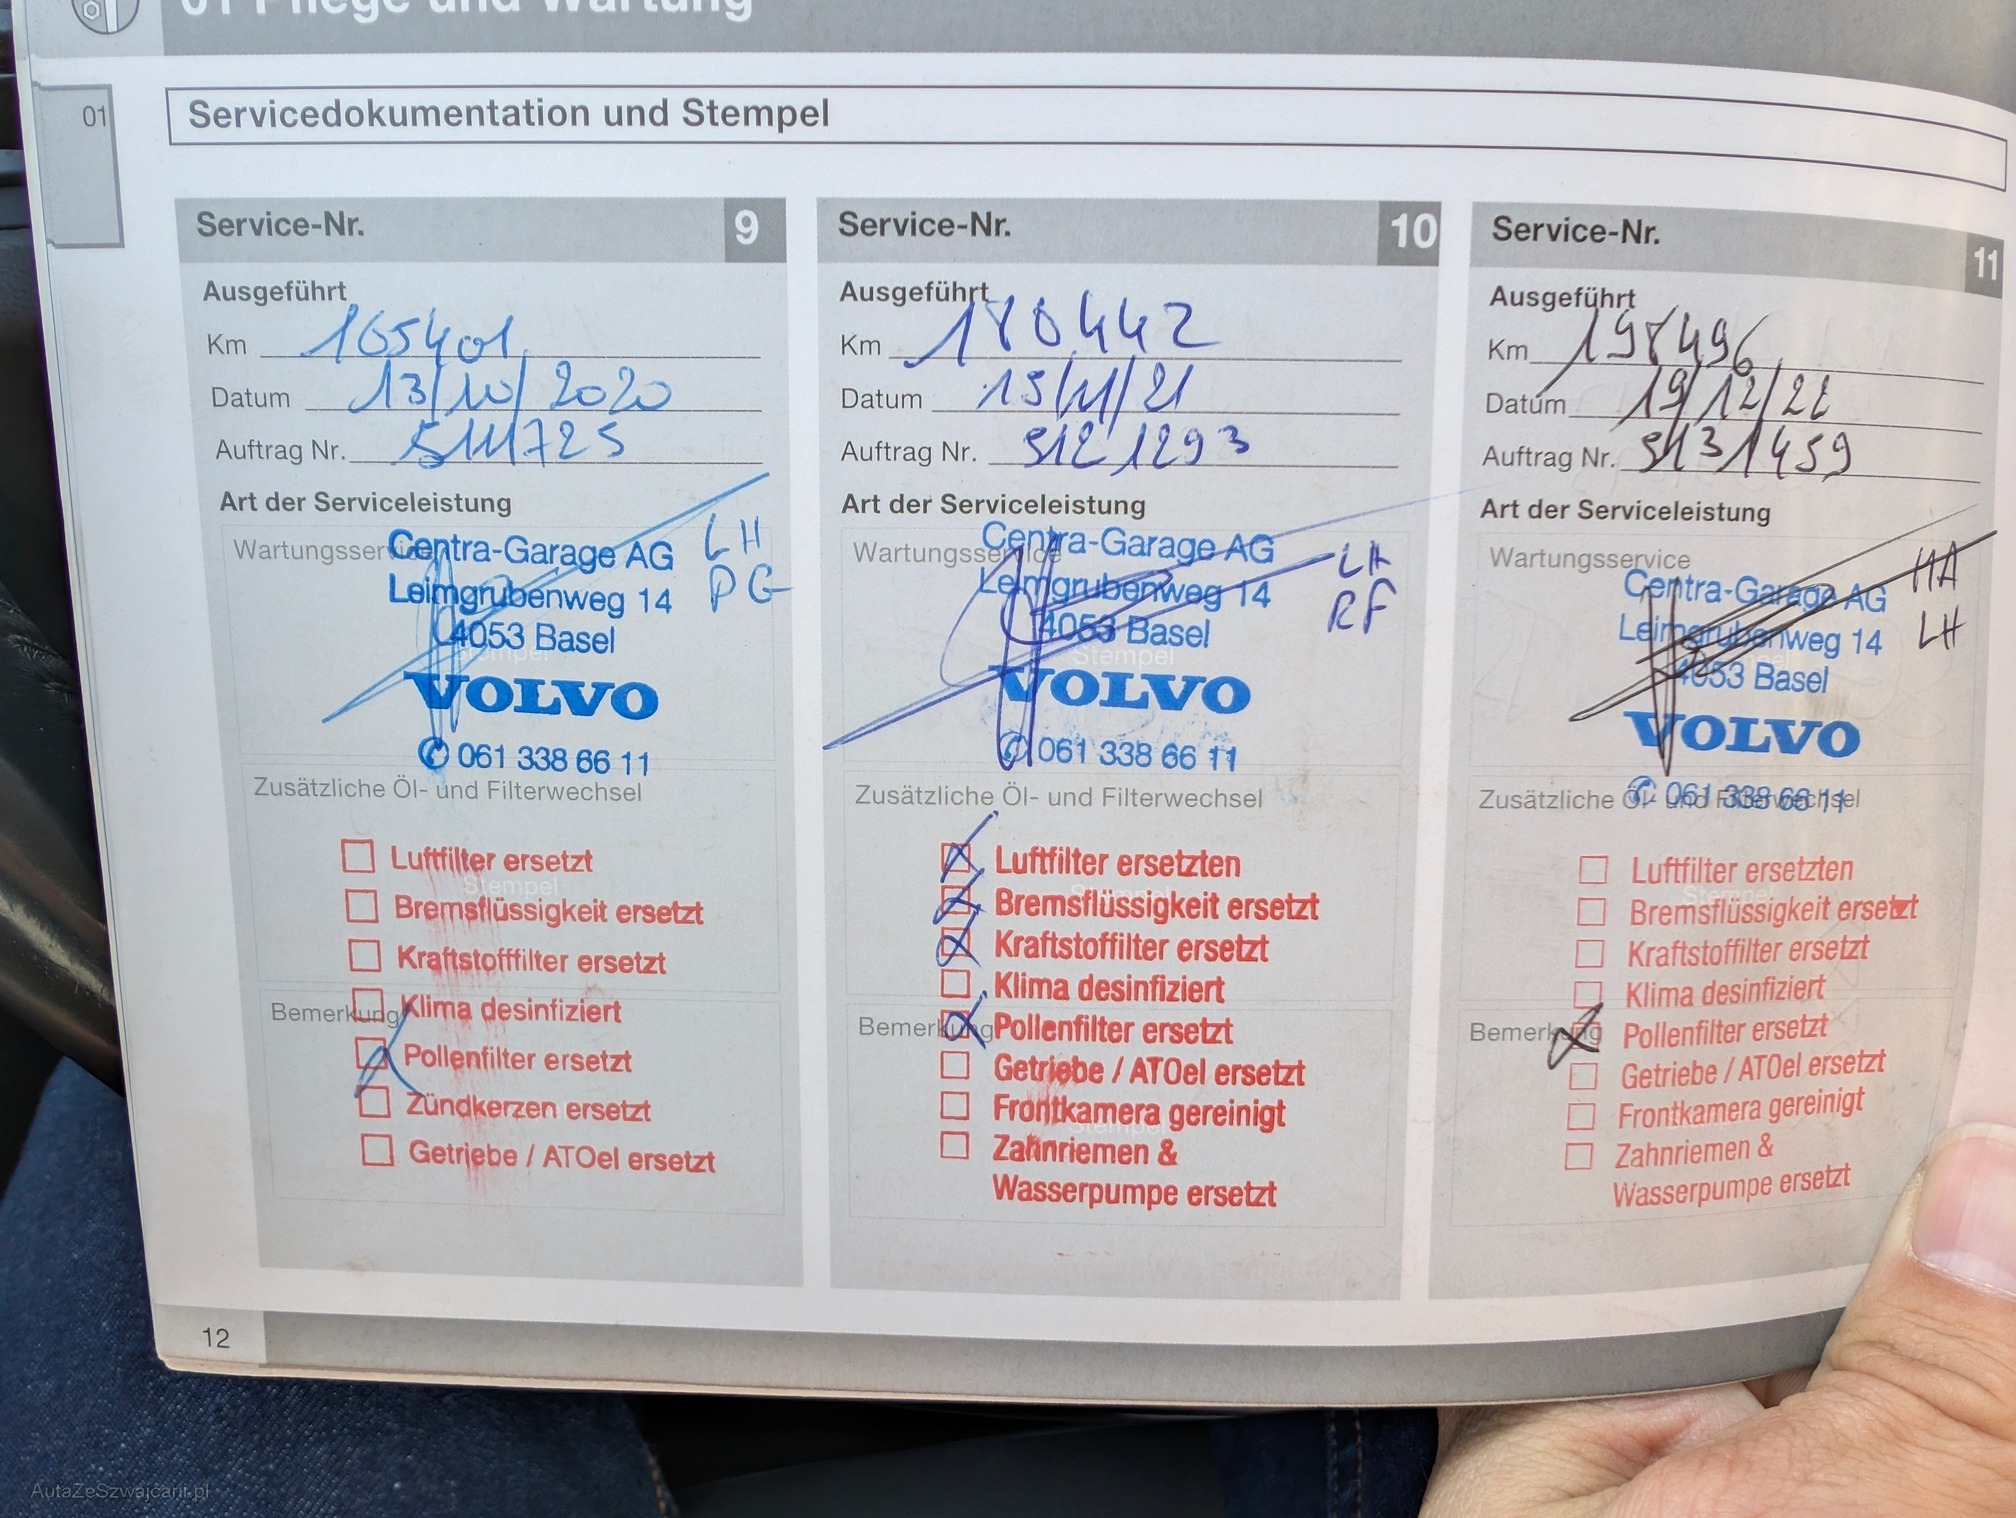 01 Pflege und Wartung
01
Servicedokumentation und Stempel
Service-Nr. 9
Ausgeführt
Km 165401
Datum 13/10/2020
Auftrag Nr. 5111725
Art der Serviceleistung
Wartungsservice
Centra-Garage AG
Leimgrubenweg 14
4053 Basel
Stempel
VOLVO
✆ 061 338 66 11
LH
PG
Zusätzliche Öl- und Filterwechsel
Luftfilter ersetzt
Stempel
Bremsflüssigkeit ersetzt
Kraftstofffilter ersetzt
Bemerkung
Klima desinfiziert
Pollenfilter ersetzt
Zündkerzen ersetzt
Getriebe / ATOel ersetzt
Service-Nr. 10
Ausgeführt
Km 180442
Datum 15/11/21
Auftrag Nr. 5121293
Art der Serviceleistung
Wartungsservice
Centra-Garage AG
Leimgrubenweg 14
4053 Basel
Stempel
VOLVO
✆ 061 338 66 11
LH
RF
Zusätzliche Öl- und Filterwechsel
Luftfilter ersetzten
Stempel
Bremsflüssigkeit ersetzt
Kraftstoffilter ersetzt
Klima desinfiziert
Bemerkung
Pollenfilter ersetzt
Getriebe / ATOel ersetzt
Frontkamera gereinigt
Stempel
Zahnriemen &
Wasserpumpe ersetzt
Service-Nr. 11
Ausgeführt
Km 198496
Datum 19/12/22
Auftrag Nr. 5131459
Art der Serviceleistung
Wartungsservice
Centra-Garage AG
Leimgrubenweg 14
4053 Basel
VOLVO
✆ 061 338 66 11
HA
LH
Zusätzliche Öl- und Filterwechsel
Luftfilter ersetzten
Stempel
Bremsflüssigkeit ersetzt
Kraftstoffilter ersetzt
Klima desinfiziert
Bemerkung
Pollenfilter ersetzt
Getriebe / ATOel ersetzt
Frontkamera gereinigt
Zahnriemen &
Wasserpumpe ersetzt
12
AutaZeSzwajcarii.pl